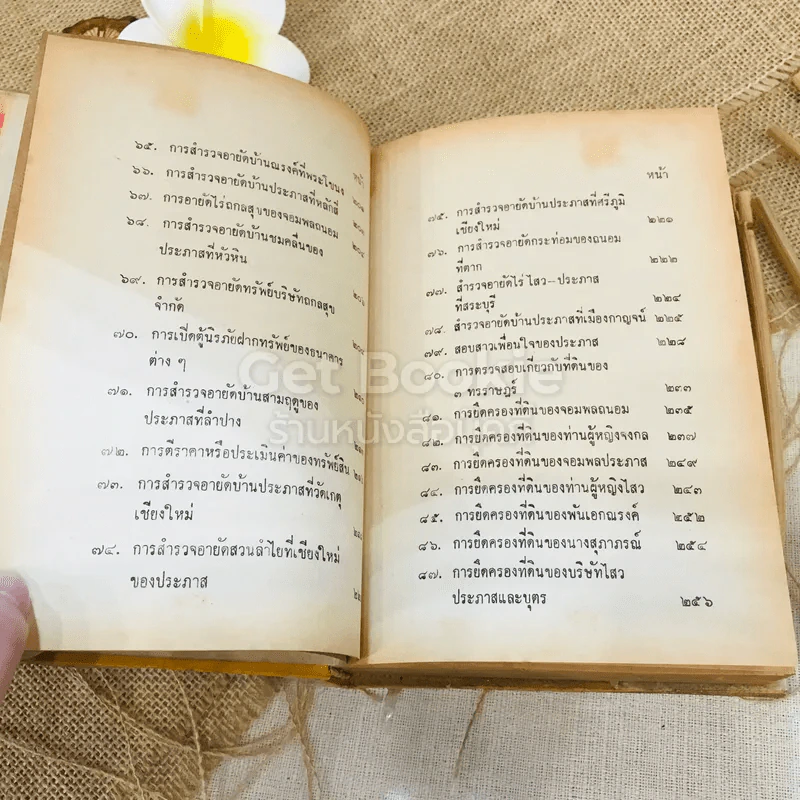 หน้า
๖๕. การสำรวจอายัดบ้านณรงค์ที่พระโขนง
๖๖. การสำรวจอายัดบ้านประภาสที่หลักสี่
๖๗. การอายัดไร่ถกลสุขของจอมพลถนอม
๖๘. การสำรวจอายัดบ้านชมคลื่นของ
ประภาสที่หัวหิน
๖๙. การสำรวจอายัดทรัพย์บริษัทถกลสุข
จำกัด
๗๐. การเปิดตู้นิรภัยฝากทรัพย์ของธนาคาร
ต่าง ๆ
๗๑. การสำรวจอายัดบ้านสามฤดูของ
ประภาสที่ลำปาง
๗๒. การตีราคาหรือประเมินค่าของทรัพย์สิน
๗๓. การสำรวจอายัดบ้านประภาสที่วัดเกตุ
เชียงใหม่
๗๔. การสำรวจอายัดสวนลำไยที่เชียงใหม่
ของประภาส
หน้า
๗๕. การสำรวจอายัดบ้านประภาสที่ศรีภูมิ
เชียงใหม่ ๒๒๑
๗๖. การสำรวจอายัดกระท่อมของถนอม
ที่ตาก ๒๒๒
๗๗. สำรวจอายัดไร่ ไสว-ประภาส
ที่สระบุรี ๒๒๔
๗๘. สำรวจอายัดบ้านประภาสที่เมืองกาญจน์ ๒๒๕
๗๙. สอบสาวเพื่อนใจของประภาส ๒๒๘
๘๐. การตรวจสอบเกี่ยวกับที่ดินของ
๓ ทรราษฎร์ ๒๓๓
๘๑. การยึดครองที่ดินของจอมพลถนอม ๒๓๕
๘๒. การยึดครองที่ดินของท่านผู้หญิงจงกล ๒๓๗
๘๓. การยึดครองที่ดินของจอมพลประภาส ๒๔๙
๘๔. การยึดครองที่ดินของท่านผู้หญิงไสว ๒๔๓
๘๕. การยึดครองที่ดินของพันเอกณรงค์ ๒๕๒
๘๖. การยึดครองที่ดินของนางสุภาภรณ์ ๒๕๔
๘๗. การยึดครองที่ดินของบริษัทไสว
ประภาสและบุตร ๒๕๖
Get Bookie